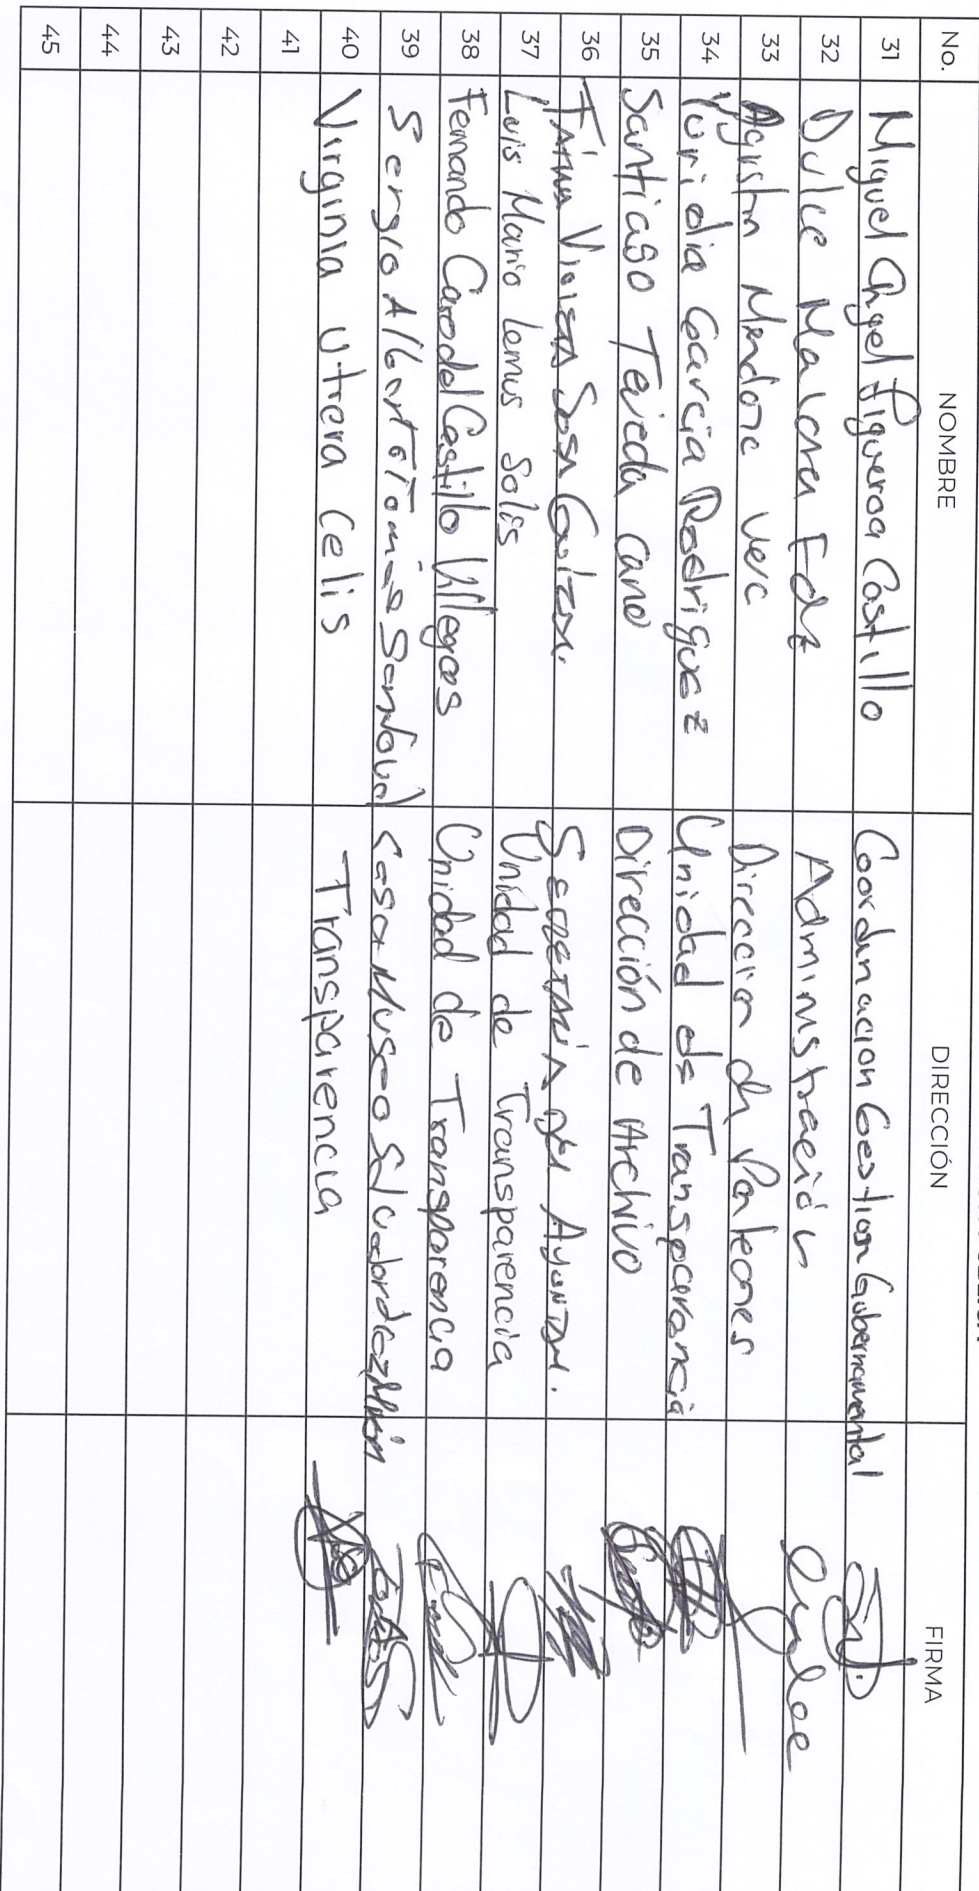 No. NOMBRE DIRECCIÓN FIRMA
31 Miguel Angel Figueroa Castillo Coordinacion Gestion Gubernamental
32 Dulce Malena Administración
33 Agustin Mendoza Vera Dirección de Panteones
34 Yuridia Garcia Rodriguez Unidad de Transparencia
35 Santiago Tejeda Cano Dirección de Archivo
36 Fátima Sosa Secretaría del Ayuntam.
37 Luis Mario Lemus Solis Unidad de Transparencia
38 Fernando Caro del Castillo Villegas Unidad de Transparencia
39 Sergio Alberto Sandoval Casa Museo Salvador Díaz Mirón
40 Virginia Utrera Celis Transparencia
41
42
43
44
45